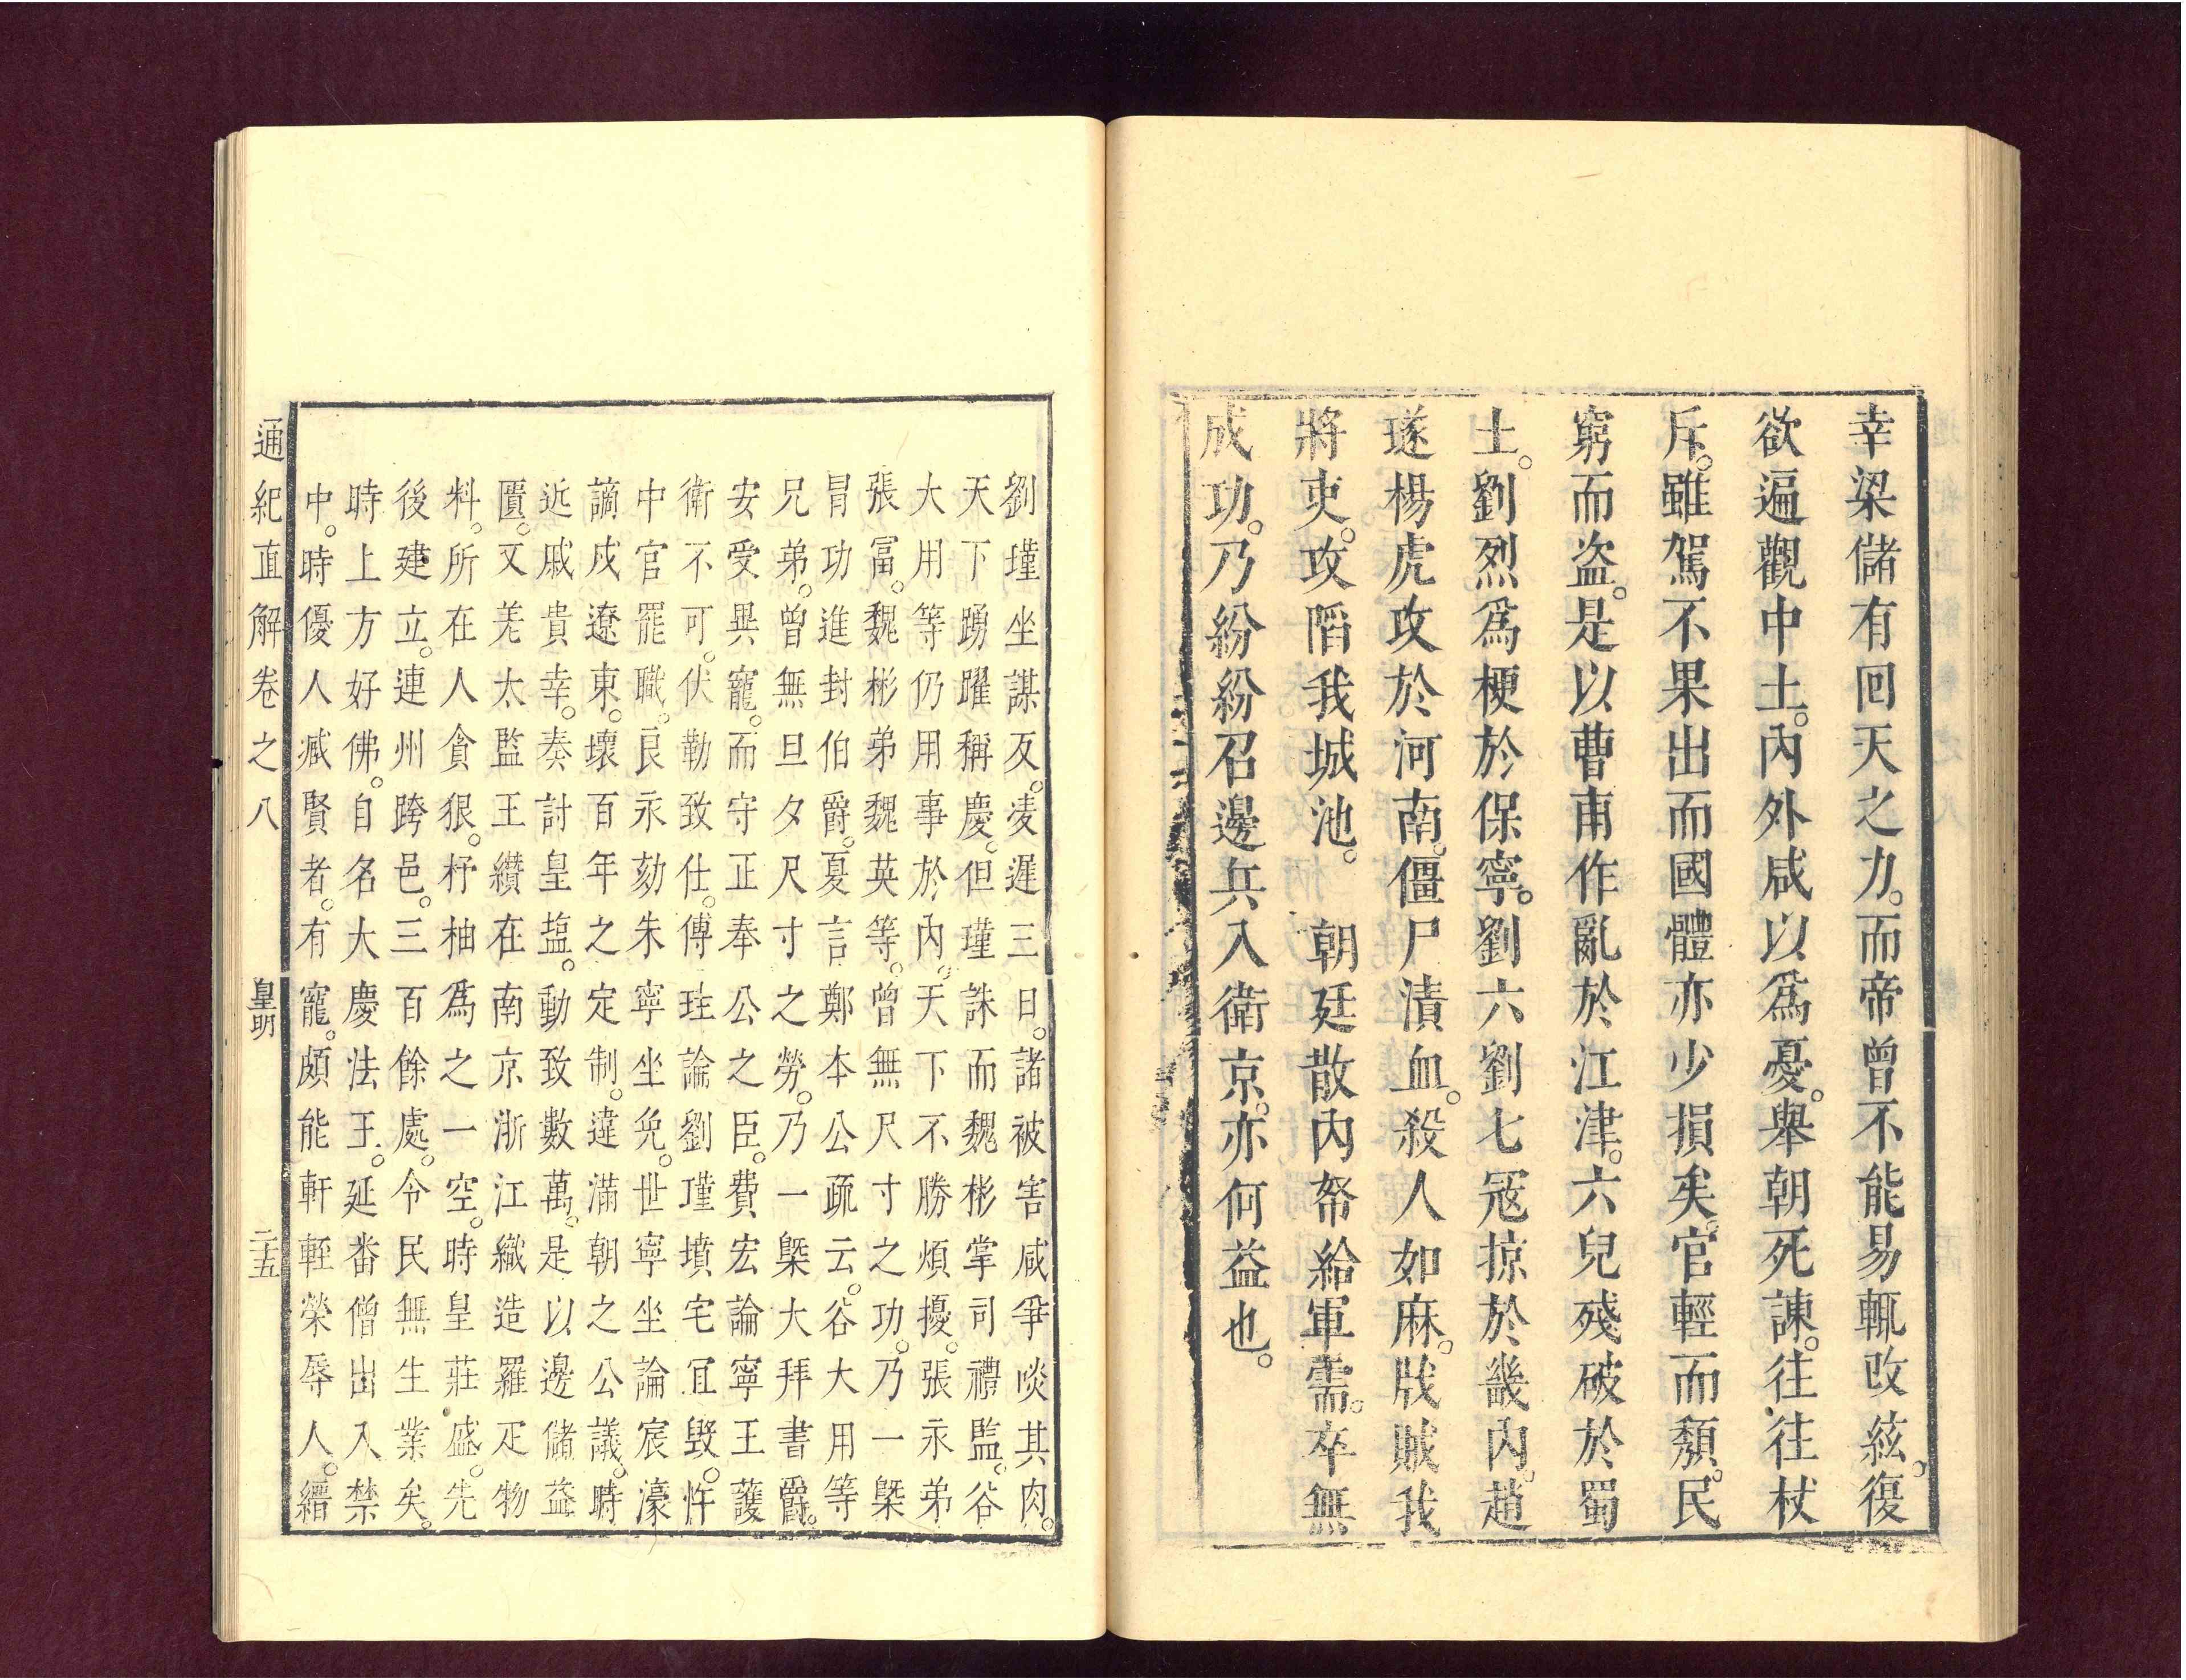 幸梁儲有回天之力。而帝曾不能易轍改絃。復
欲遍觀中土。內外咸以爲憂。舉朝死諫。往往杖
斥。雖駕不果出。而國體亦少損矣。官輕而頽。民
窮而盜。是以曹甫作亂於江津。六兒殘破於蜀
土。劉烈爲梗於保寧。劉六劉七冦掠於畿內。趙
遂楊虎攻於河南。僵尸漬血。殺人如麻。戕賊我
將吏。攻䧟我城池。　朝廷散內帑給軍需。卒無
成功。乃紛紛召邊兵入衛京。亦何益也。
劉瑾坐謀反。凌遲三日。諸被害咸爭啖其肉。
天下踴躍稱慶。但瑾誅而魏彬掌司禮監。谷
大用等仍用事於內。天下不勝煩擾。張永弟
張富。魏彬弟魏英等。曾無尺寸之功。乃一槩
冐功進封伯爵。夏言鄭本公疏云。谷大用等
兄弟。曾無旦夕尺寸之勞。乃一槩大拜書爵。
安受異寵。而守正奉公之臣。費宏論寧王護
衛不可。伏勒致仕。傅珪論劉瑾墳宅宜毀。忤
中官罷職。良永劾朱寧坐免。世寧坐論宸濠
謫戍遼東。壞百年之定制。違滿朝之公議。時
近戚貴幸。奏討皇塩。動致數萬。是以邊儲益
匱。又羗太監王纘在南京浙江織造羅疋物
料。所在人貪狠。杼柚爲之一空。時皇莊盛。先
後建立。連州跨邑。三百餘處。令民無生業矣。
時上方好佛。自名大慶法王。延畨僧出入禁
中。時優人臧賢者。有寵。頗能軒輊榮辱人。縉
通紀直解卷之八　皇明　二五